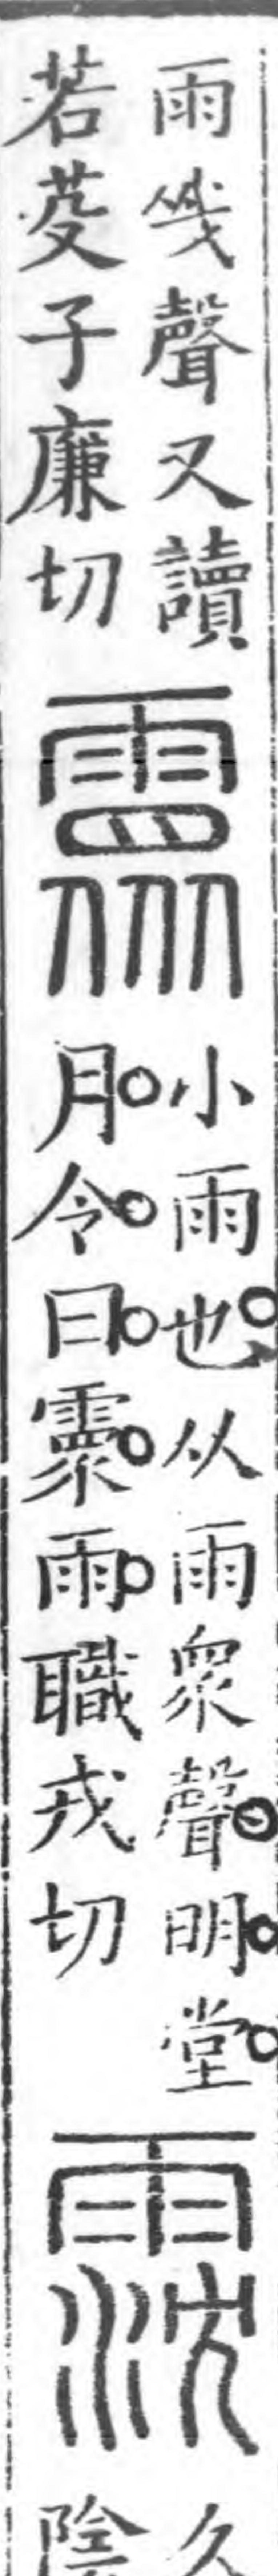 雨㦰聲又讀
若芟子廉切
霥
小雨也从雨眾聲明堂
月令曰霥雨職戎切
霃
久
陰